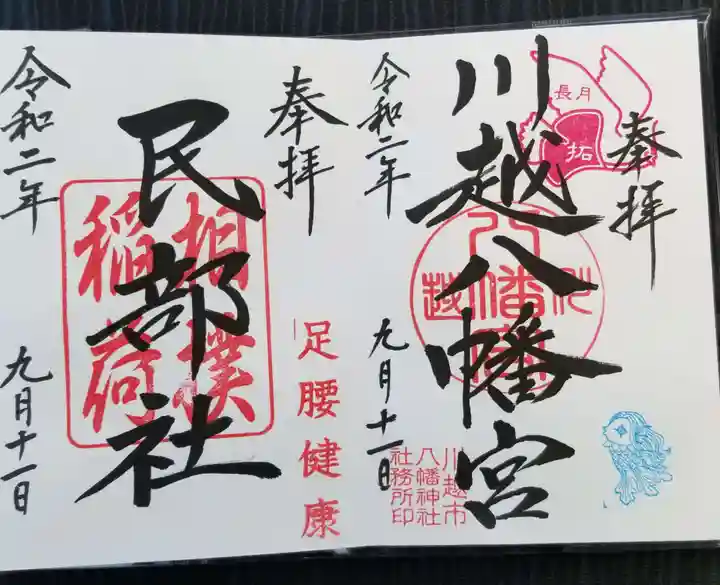 奉拝
長月
拓
川越八幡宮
川越
八幡宮
川越市
八幡神社
社務所印
令和二年
九月十一日
奉拝
足腰健康
民部社
相撲
稲荷
令和二年
九月十一日